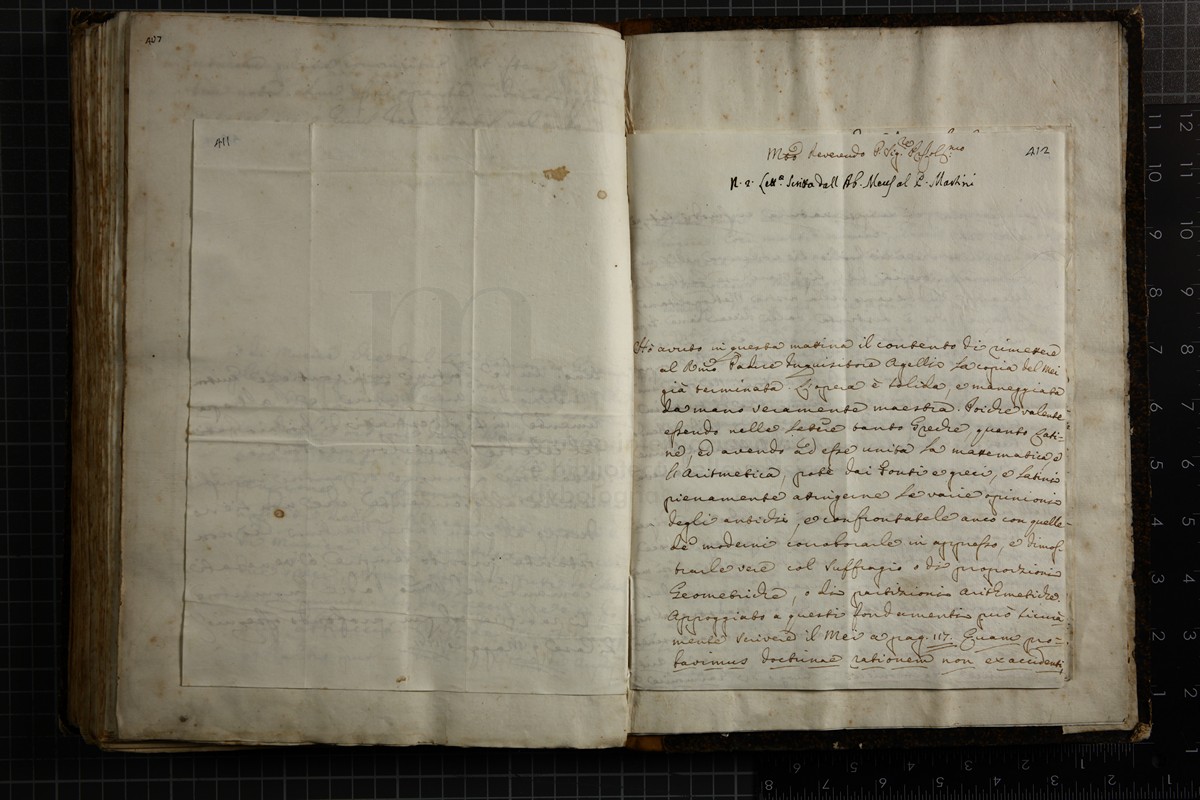 407
411
412
Mto Reverendo P. Sig.re
N. 2. Lett.a Scritta dall Ab. al P. Martini
Hò avuto in questa matina il contento di rimettere
al Rmo Padre Inquisitore Agellio la copia del Mei
già terminata. L'opera è solida, e maneggiata
da mano veramente maestra. Poiche valente
essendo nelle lettre tanto Greche quanto Lati-
ne, ed avendo ad esse unita la matematica e
l'Aritmetica, potè dai Fonti e greci, e latini
pienamente attingerne le varie opinioni
degli antichi, e confrontatele anco con quelle
de' moderni corroborarle in appresso, e dimos-
trarle vere col suffragio o di proporzioni
Geometriche, o di partizioni aritmetiche.
Appoggiato a questi fondamenti può sicura
mente scrivere il Mei a pag. 117. Quam pro-
bavimus doctrinae rationem non ex accidenti